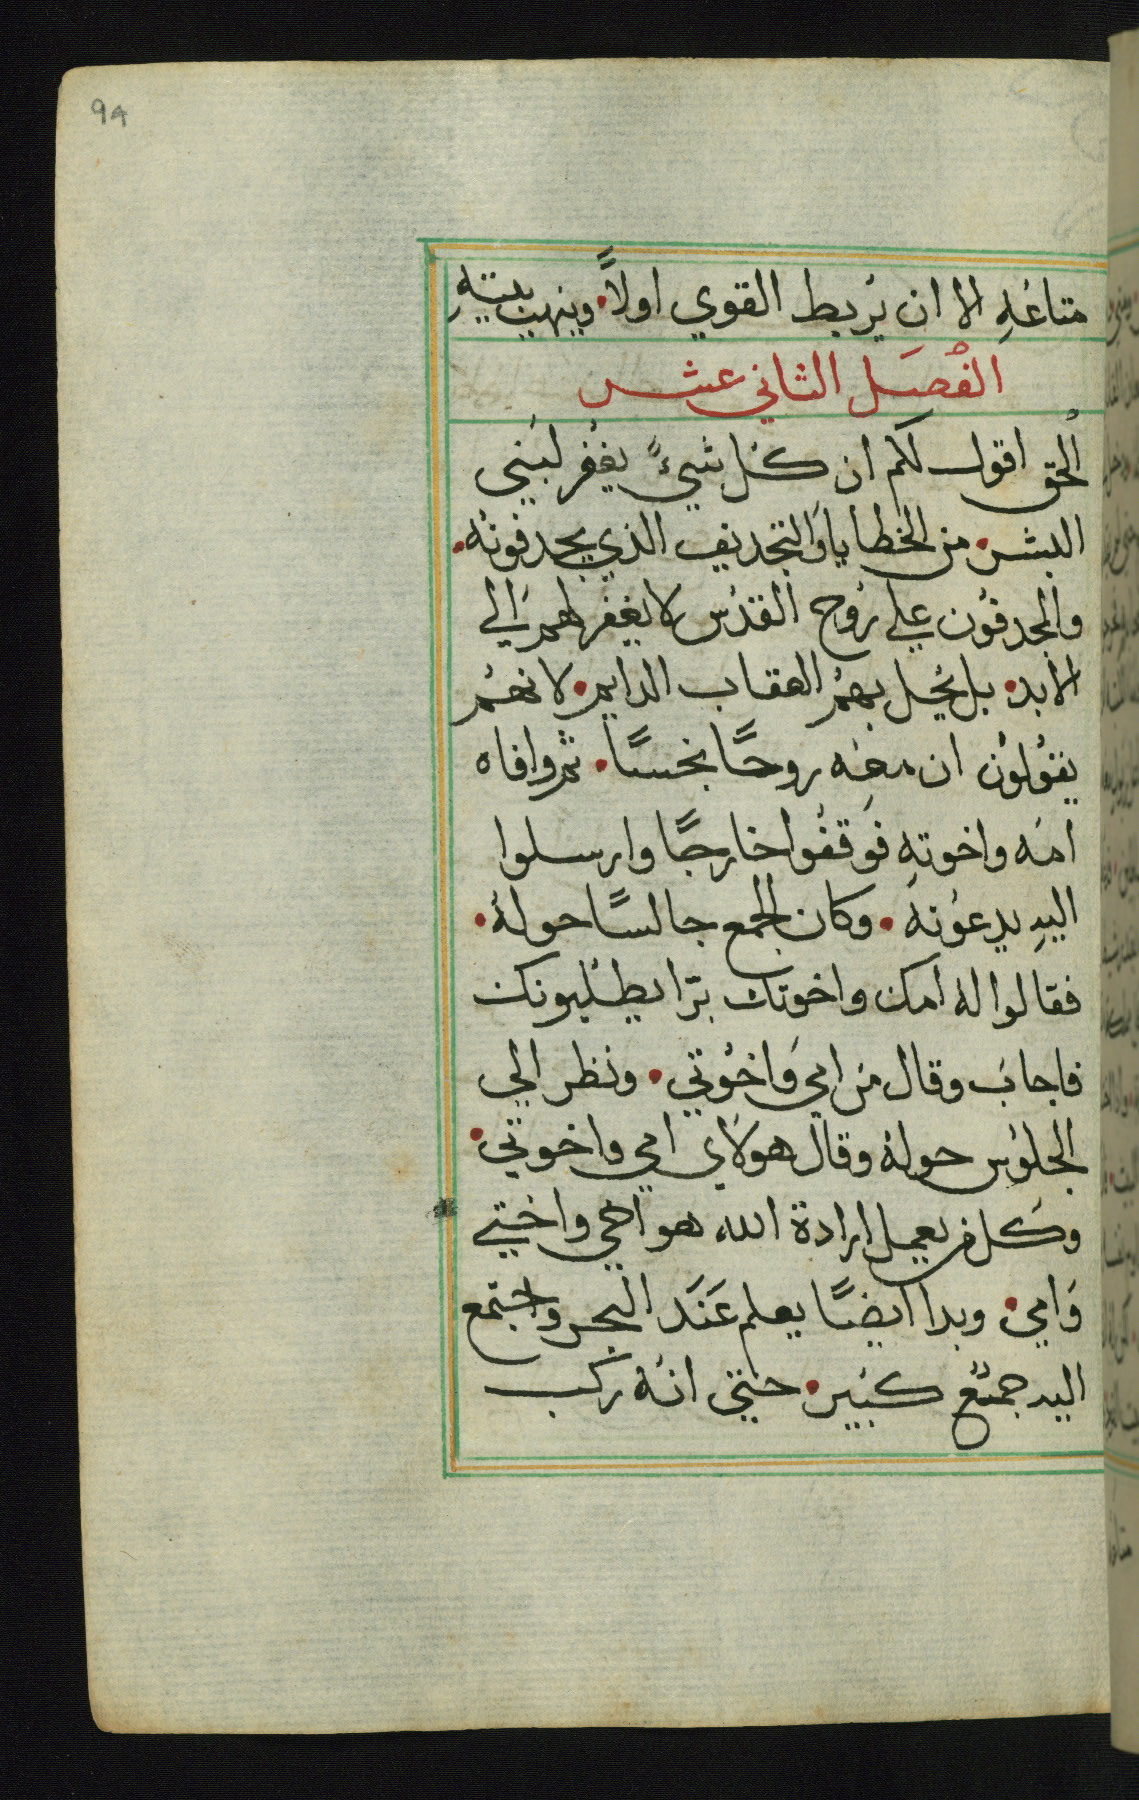 94
متاعَهِ الا ان يُربط القوي اولاً. وينهب بيتهِ
الفصَل الثاني عشر
الحق اقول لكم ان كل شيءً يغفر لبَني
البشر. من الخطايا والتجديف الذي يجدفونه.
والمجدفون علي رُوح القدُس لا يغفر لهم الي
الابد. بل يُحل بهمُ العقاب الدايم. لانهُم
يقوُلوُن ان معَه روحًا نجسًا. ثم وافاه
امَه واخوتهِ فوَقفُوا خارجًا وارسلوا
اليهِ يدعوُنهِ. وكان الجمع جالسًا حولهُ.
فقالوا له امك واخوتك برّا يطلُبونك
فاجابَ وقال من امي وَاخوُتي. ونظر الي
الجلوُس حولهُ وقال هولاي امي واخوتي.
وكل من يعمل ارادة الله هو اخي واختي
وَامي. وبدا ايضًا يعلم عَندَ البحر واجتمع
اليه جمعٌ كبير. حتي انهُ ركب